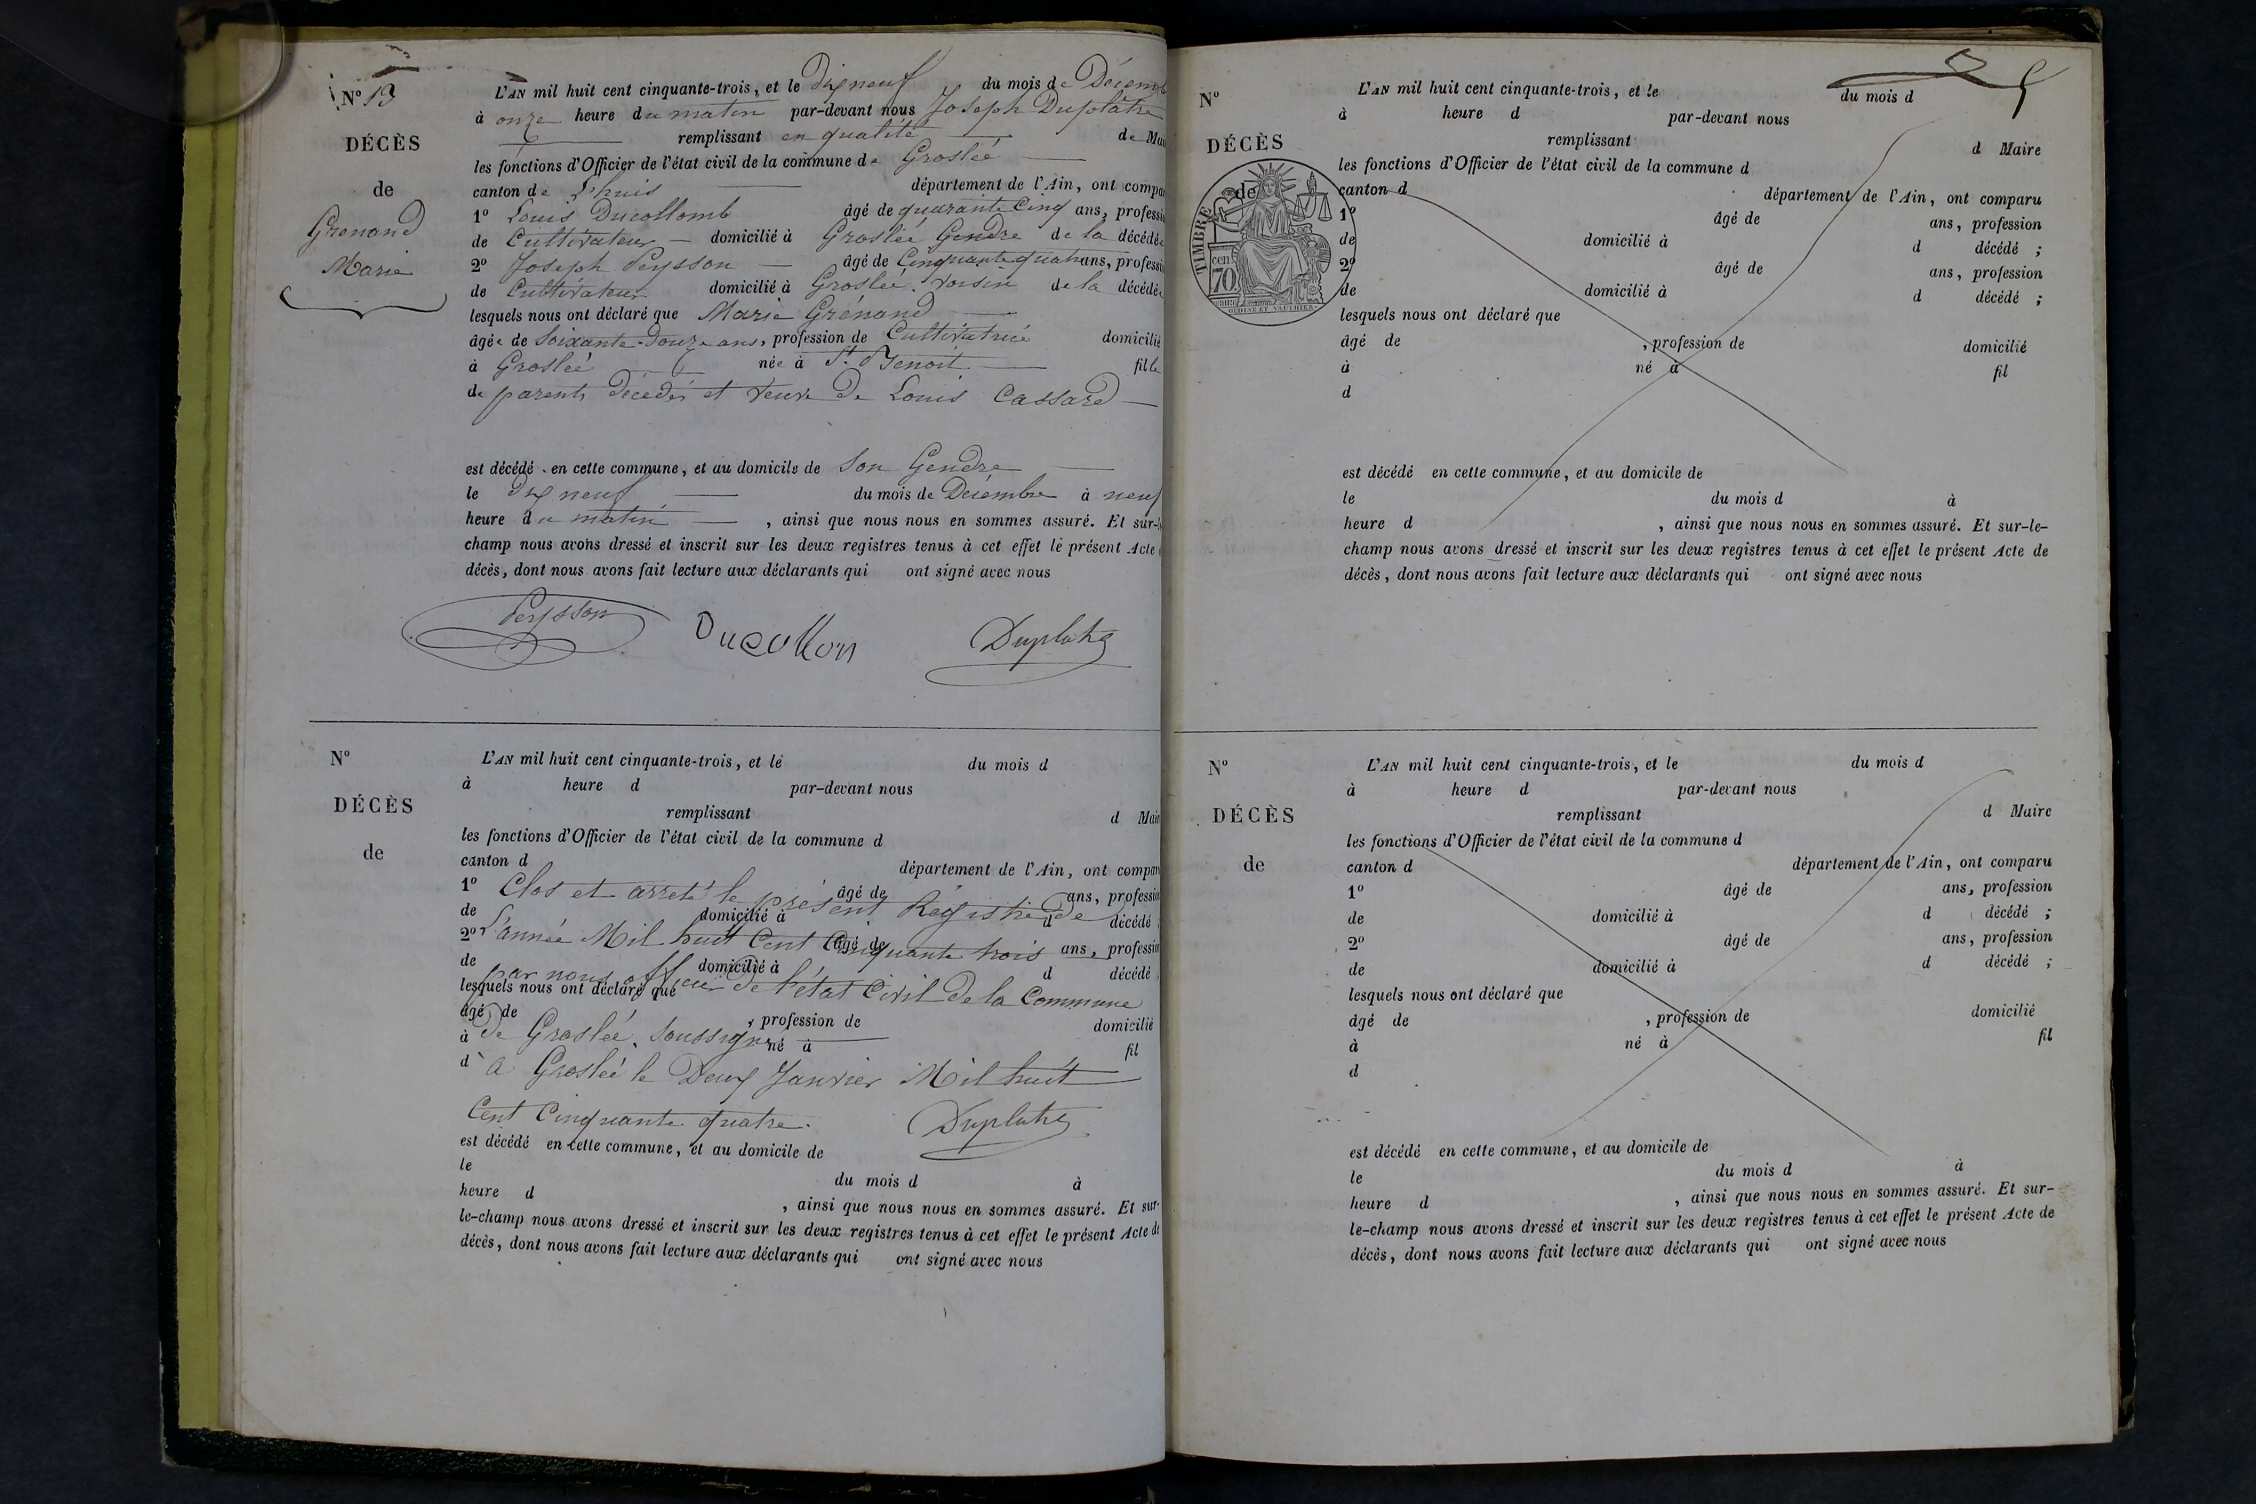 N° 13
DÉCÈS
de
Grenand
Marie
L'AN mil huit cent cinquante-trois, et le Dix neuf du mois de Décemb
à onze heure du matin par-devant nous Joseph Duplâtre
remplissant en qualité de Mai
les fonctions d'Officier de l'état civil de la commune de Groslée
canton de L'huis département de l'Ain, ont compa
1° Louis Ducollomb âgé de quarante Cinq ans, professi
de Cultivateur domicilié à Groslée Gendre de la décédée
2° Joseph Peysson âgé de Cinquante quatre ans, professi
de Cultivateur domicilié à Groslée Voisin de la décédée
lesquels nous ont déclaré que Marie Grénand
âgée de Soixante Douze ans, profession de Cultivatrice domicilié
à Groslée née à St. Benoit fille
de parents décédés et veuve De Louis Cassard
est décédé en cette commune, et au domicile de Son Gendre
le Dix neuf du mois de Décembre à neuf
heure du matin , ainsi que nous nous en sommes assuré. Et sur-l
champ nous avons dressé et inscrit sur les deux registres tenus à cet effet le présent Acte
décès, dont nous avons fait lecture aux déclarants qui ont signé avec nous
Peysson Ducollon Duplatre
N°
DÉCÈS
de
L'AN mil huit cent cinquante-trois, et le du mois d
à heure d par-devant nous
remplissant d Mair
les fonctions d'Officier de l'état civil de la commune d
canton d département de l'Ain, ont compar
1° âgé de ans, profession
Clos et arreté le présent Régistre De
de domicilié à d décédé ;
L'année Mil huit Cent Cinquante trois
2° âgé de ans, profession
de domicilié à d décédé ;
par nous officier De l'état Civil De la Commune
lesquels nous ont déclaré que
âgé de , profession de domicilié
De Groslée, Soussigné
à né à fil
d
a Groslée le Deux Janvier Mil huit
Cent Cinquante quatre. Duplatre
est décédé en cette commune, et au domicile de
le du mois d à
heure d , ainsi que nous nous en sommes assuré. Et sur-
le-champ nous avons dressé et inscrit sur les deux registres tenus à cet effet le présent Acte de
décès, dont nous avons fait lecture aux déclarants qui ont signé avec nous
N°
DÉCÈS
de
TIMBRE
cen
70
L'AN mil huit cent cinquante-trois, et le du mois d
à heure d par-devant nous
remplissant d Maire
les fonctions d'Officier de l'état civil de la commune d
canton d département de l'Ain, ont comparu
1° âgé de ans, profession
de domicilié à d décédé ;
2° âgé de ans, profession
de domicilié à d décédé ;
lesquels nous ont déclaré que
âgé de , profession de domicilié
à né à fil
d
est décédé en cette commune, et au domicile de
le du mois d à
heure d , ainsi que nous nous en sommes assuré. Et sur-le-
champ nous avons dressé et inscrit sur les deux registres tenus à cet effet le présent Acte de
décès, dont nous avons fait lecture aux déclarants qui ont signé avec nous
N°
DÉCÈS
de
L'AN mil huit cent cinquante-trois, et le du mois d
à heure d par-devant nous
remplissant d Maire
les fonctions d'Officier de l'état civil de la commune d
canton d département de l'Ain, ont comparu
1° âgé de ans, profession
de domicilié à d décédé ;
2° âgé de ans, profession
de domicilié à d décédé ;
lesquels nous ont déclaré que
âgé de , profession de domicilié
à né à fil
d
est décédé en cette commune, et au domicile de
le du mois d à
heure d , ainsi que nous nous en sommes assuré. Et sur-
le-champ nous avons dressé et inscrit sur les deux registres tenus à cet effet le présent Acte de
décès, dont nous avons fait lecture aux déclarants qui ont signé avec nous